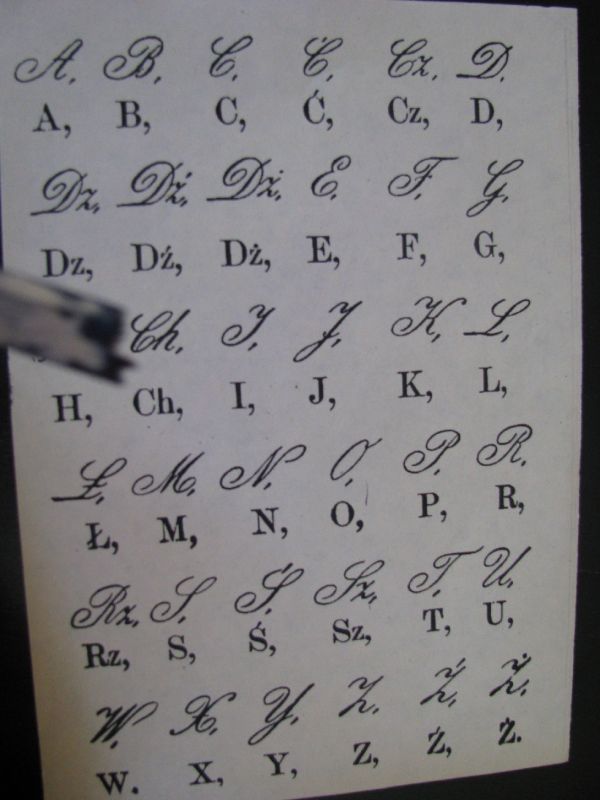 A. B. C. Ć. Cz. D.
A, B, C, Ć, Cz, D,
Dz. Dź. Dż. E. F. G.
Dz, Dź, Dż, E, F, G,
Ch. I. J. K. L.
H, Ch, I, J, K, L,
Ł. M. N. O. P. R.
Ł, M, N, O, P, R,
Rz. S. Ś. Sz. T. U.
Rz, S, Ś, Sz, T, U,
W. X. Y. Z. Ź. Ż.
W. X, Y, Z, Ź, Ż.